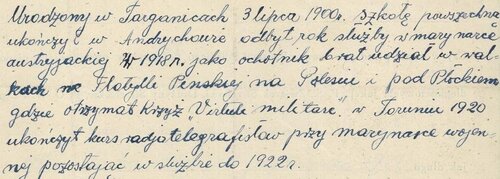 Urodzony w Targanicach 3 lipca 1900r. Szkołę powszechną
ukończył w Andrychowie odbył rok służby w marynarce
austryjackiej W 1918r. jako ochotnik brał udział w wal-
kach we Flotylli Pińskiej na Polesiu i pod Płockiem
gdzie otrzymał Krzyż "Virtuti militari", w Toruniu 1920
ukończył kurs radjotelegrafistów przy marynarce wojen-
nej pozostając w służbie do 1922r.